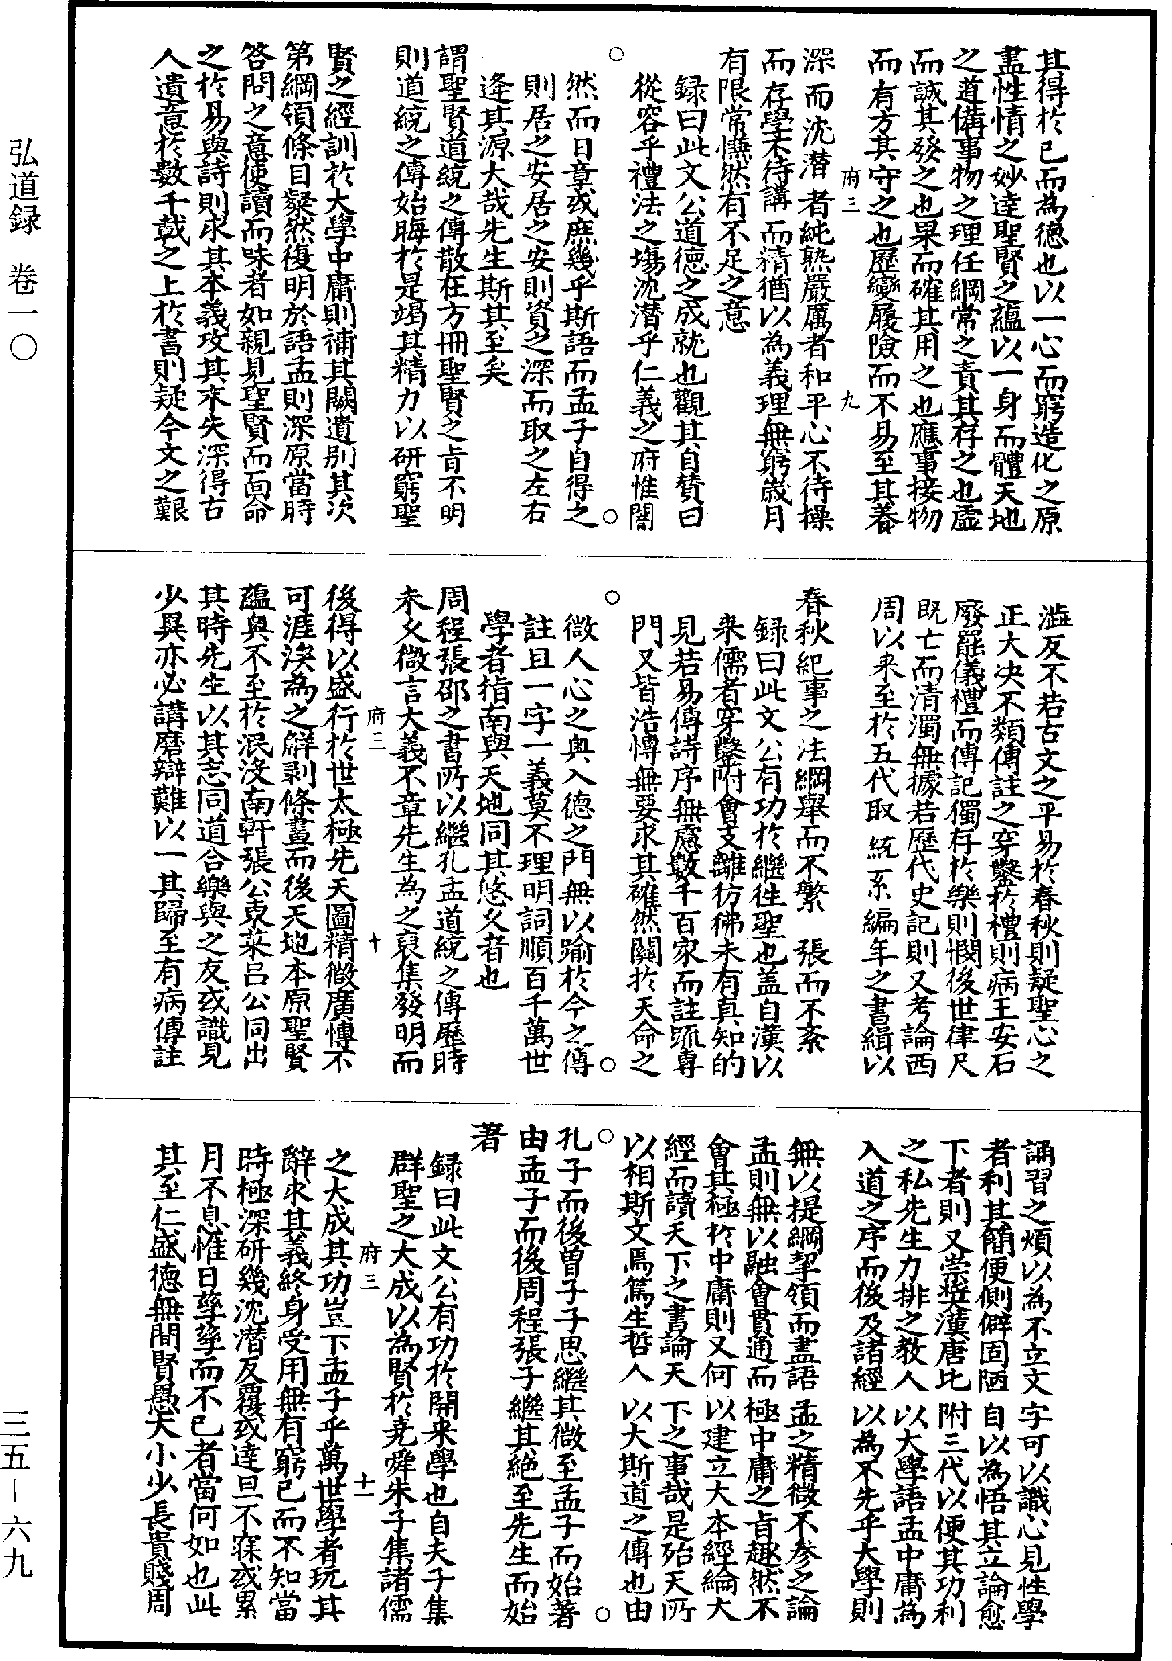 其得於已而為德也以一心而窮造化之原
盡性情之妙達聖賢之蘊以一身而體天地
之道備事物之理任綱常之責其存之也虛
而誠其發之也果而確其用之也應事接物
而有方其守之也歷變履險而不易至其養
府三
九
深而沈潜者純熟嚴厲者和平心不待操
而存學不待講而精猶以為義理無窮歲月
有限常慊然有不足之意
錄曰此文公道德之成就也觀其自賛曰
從容乎禮法之塲沈潜乎仁義之府惟闇
然而日章或庶幾乎斯語而孟子自得之
則居之安居之安則資之深而取之左右
逢其源大哉先生斯其至矣
謂聖賢道統之傳散在方冊聖賢之旨不明
則道統之傳始晦於是竭其精力以研窮聖
賢之經訓於大學中庸則補其闕遺別其次
第綱領條目粲然復明於語孟則深原當時
答問之意使讀而味者如親見聖賢而面命
之於易與詩則求其本義攻其末失深得古
人遺意於數千載之上於書則疑今文之艱
澁反不若古文之平易於春秋則疑聖心之
正大决不類傳註之穿鑿於禮則病王安石
廢罷儀禮而傳記獨存於樂則憫後世律尺
既亡而清濁無據若歷代史記則又考論西
周以来至於五代取 統系編年之書緝以
春秋紀事之法綱舉而不繁 張而不紊
錄曰此文公有功於繼徃聖也盖自漢以
来儒者穿鑿附會支離彷彿未有真知的
見若易傳詩序無慮數千百家而註䟽專
門又皆浩愽無要求其確然關於天命之
微人心之奥入德之門無以踰於今之傳
註且一字一義莫不理明詞順百千萬世
學者指南與天地同其悠久者也
周程張邵之書所以繼孔孟道統之傳歷時
未乆微言大義不章先生為之裒集發明而
府三
十
後得以盛行於世太極先天圖精微廣愽不
可涯涘為之觧剥條畫而後天地本原聖賢
蘊奥不至於泯沒南軒張公東萊吕公同出
其時先生以其志同道合樂與之友或識見
少異亦必講磨辯難以一其歸至有病傳註
誦習之煩以為不立文字可以識心見性學
者利其簡便側僻固陋自以為悟其立論愈
下者則又崇奬漢唐比附三代以便其功利
之私先生力排之教人以大學語孟中庸為
入道之序而後及諸經以為不先乎大學則
無以提綱挈領而盡語孟之精微不參之論
孟則無以融會貫通而極中庸之旨趣然不
會其極於中庸則又何以建立大本經綸大
經而讀天下之書論天下之事哉是殆天所
以相斯文焉篤生哲人以大斯道之傳也由
孔子而後曾子子思繼其微至孟子而始著
由孟子而後周程張子繼其絕至先生而始
著
錄曰此文公有功於開来學也自夫子集
群聖之大成以為賢於堯舜朱子集諸儒
府三
十一
之大成其功豈下孟子乎萬世學者玩其
辭求其義終身受用無有窮已而不知當
時極深研幾沈潜反覆或達旦不寐或累
月不息惟日孳孳而不已者當何如也此
其至仁盛德無間賢愚大小少長貴賤周
弘道録 卷一〇
三五－六九